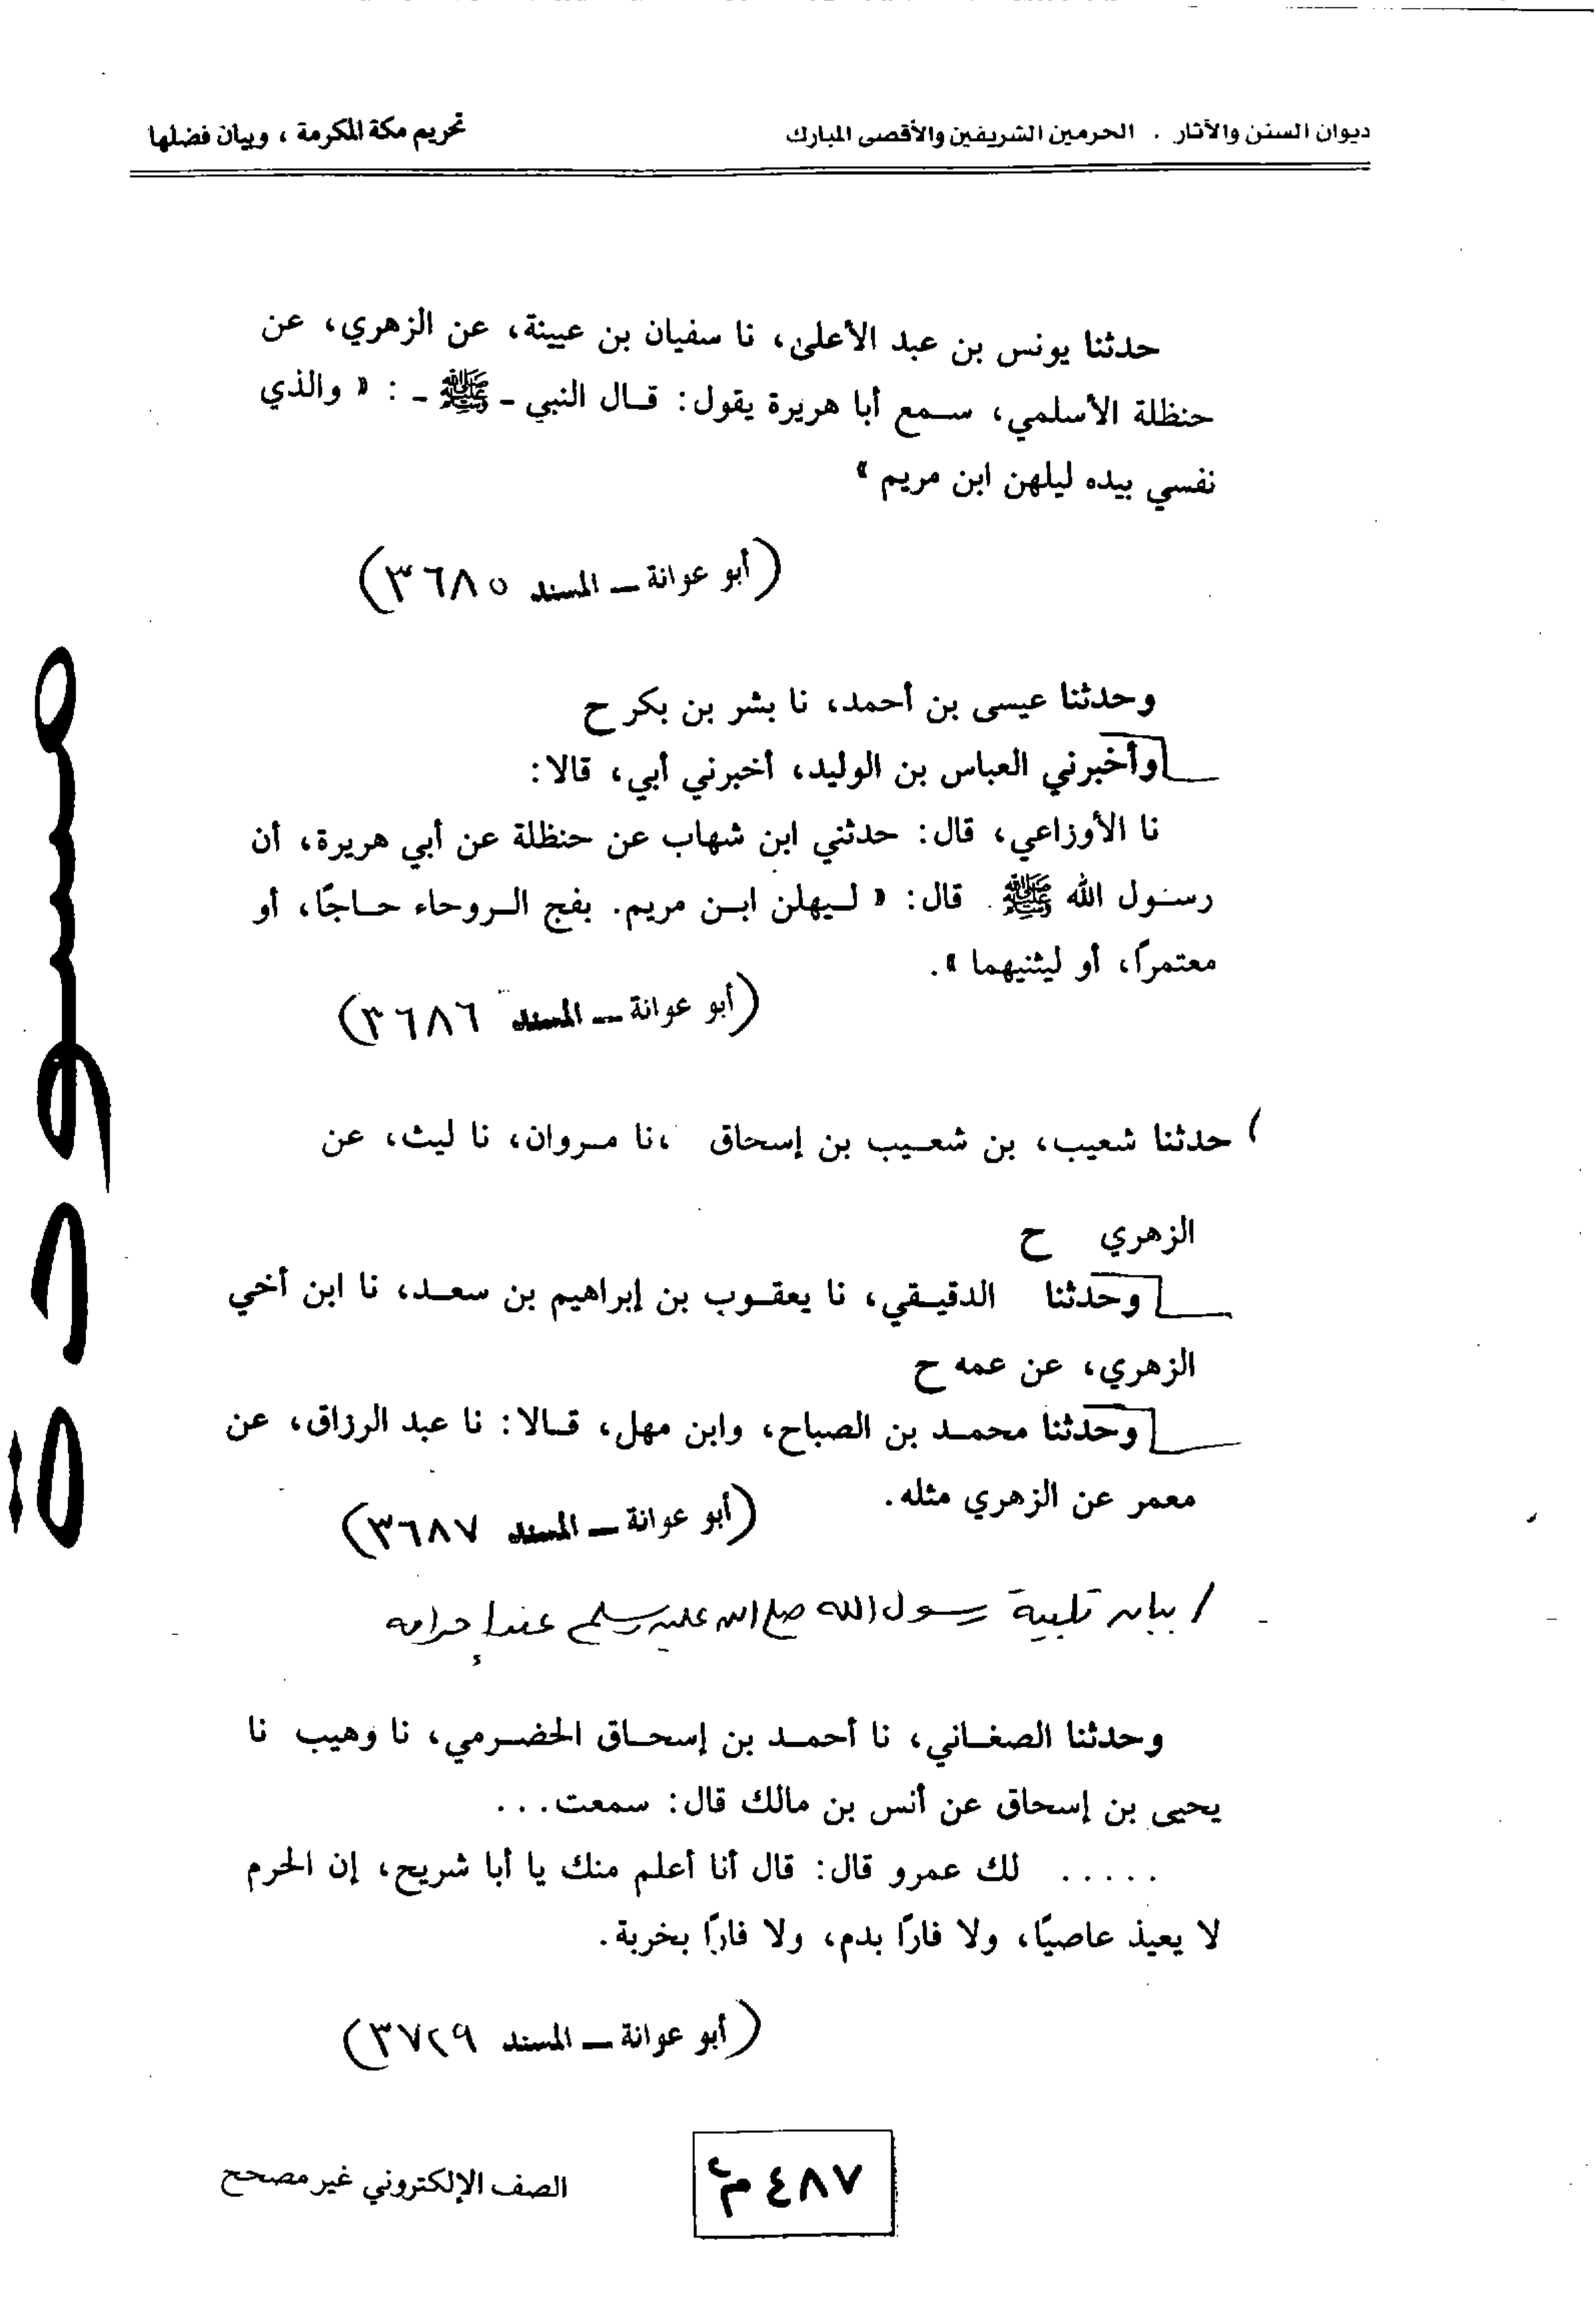 ديوان السنن والآثار . الحرمين الشريفين والأقصى المبارك
تحريم مكة المكرمة ، وبيان فضلها
حدثنا يونس بن عبد الأعلى، نا سفيان بن عيينة، عن الزهري، عن
حنظلة الأسلمي، سمع أبا هريرة يقول: قال النبي - ﷺ - : « والذي
نفسي بيده ليلهن ابن مريم »
(أبو عوانة – المسند ٣٦٨٥)
وحدثنا عيسى بن أحمد، نا بشر بن بكر ح
وأخبرني العباس بن الوليد، أخبرني أبي، قالا:
نا الأوزاعي، قال: حدثني ابن شهاب عن حنظلة عن أبي هريرة، أن
رسول الله ﷺ قال: « ليهلن ابن مريم. بفج الروحاء حاجًا، أو
معتمرًا، أو ليثنيهما ».
(أبو عوانة – المسند ٣٦٨٦)
حدثنا شعيب، بن شعيب بن إسحاق ،نا مروان، نا ليث، عن
الزهري ح
وحدثنا الدقيقي، نا يعقوب بن إبراهيم بن سعد، نا ابن أخي
الزهري، عن عمه ح
وحدثنا محمد بن الصباح، وابن مهل، قالا: نا عبد الرزاق، عن
معمر عن الزهري مثله.
(أبو عوانة – المسند ٣٦٨٧)
/ بيان تلبية رسول الله صلى الله عليه وسلم عند إحرامه
وحدثنا الصغاني، نا أحمد بن إسحاق الحضرمي، نا وهيب نا
يحيى بن إسحاق عن أنس بن مالك قال: سمعت...
..... لك عمرو قال: قال أنا أعلم منك يا أبا شريح، إن الحرم
لا يعيذ عاصيًا، ولا فارًا بدم، ولا فارًا بخربة.
(أبو عوانة – المسند ٣٧٢٩)
٤٨٧ م٢
الصف الإلكتروني غير مصحح